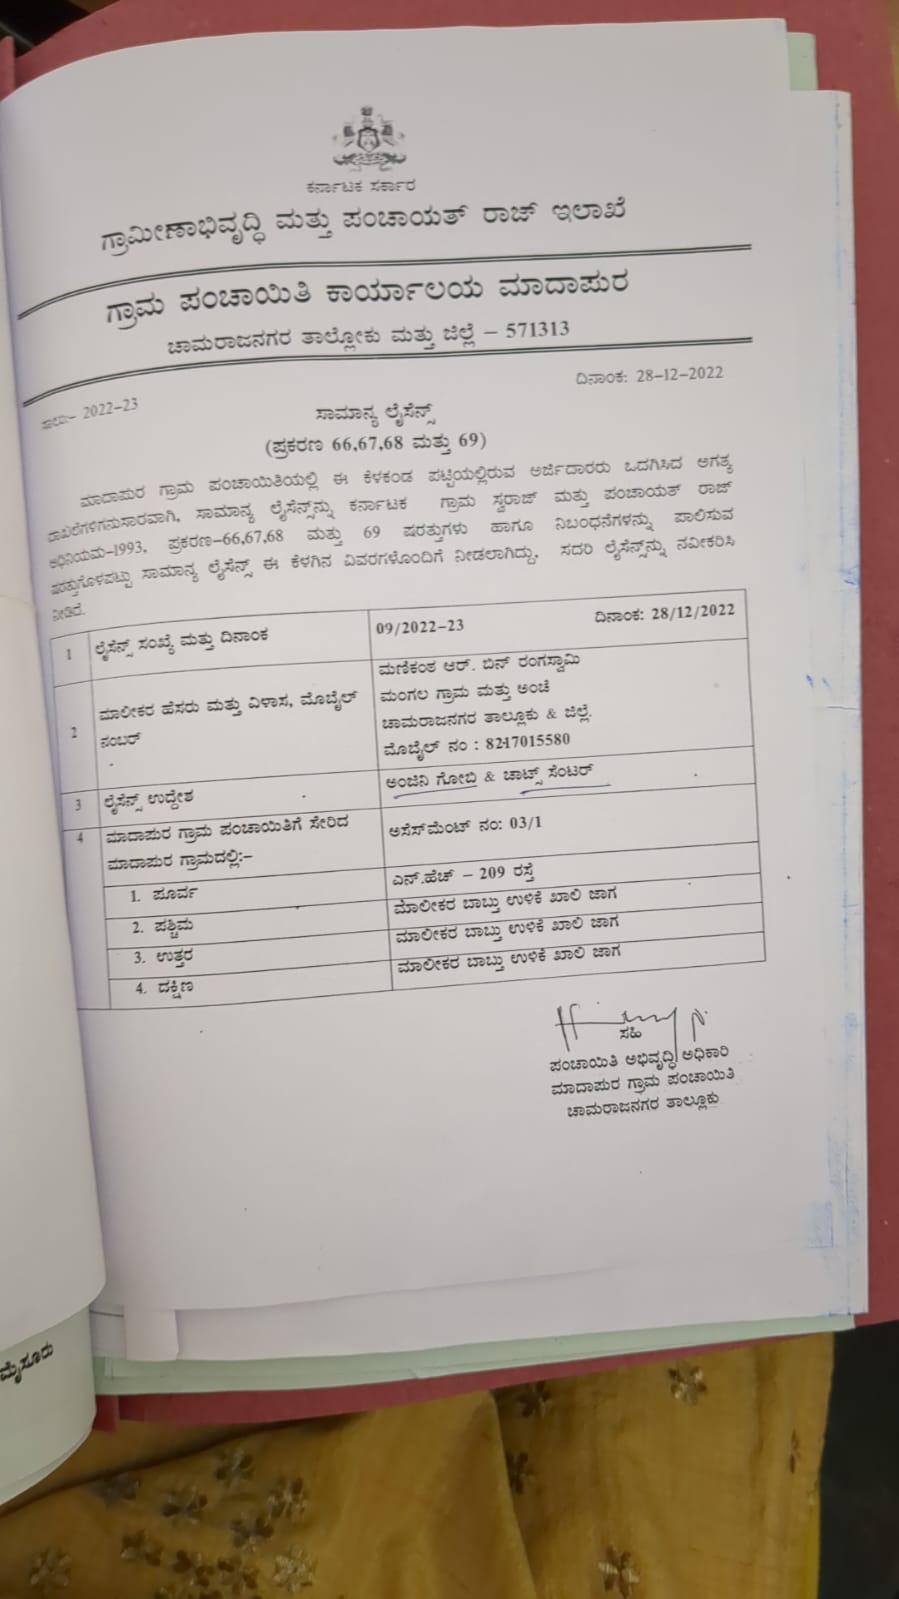 ಕರ್ನಾಟಕ ಸರ್ಕಾರ
ಗ್ರಾಮೀಣಾಭಿವೃದ್ಧಿ ಮತ್ತು ಪಂಚಾಯತ್ ರಾಜ್ ಇಲಾಖೆ
ಗ್ರಾಮ ಪಂಚಾಯಿತಿ ಕಾರ್ಯಾಲಯ ಮಾದಾಪುರ
ಚಾಮರಾಜನಗರ ತಾಲ್ಲೋಕು ಮತ್ತು ಜಿಲ್ಲೆ – 571313
ಸಾಲು:- 2022-23
ದಿನಾಂಕ: 28-12-2022
ಸಾಮಾನ್ಯ ಲೈಸೆನ್ಸ್
(ಪ್ರಕರಣ 66,67,68 ಮತ್ತು 69)
ಮಾದಾಪುರ ಗ್ರಾಮ ಪಂಚಾಯಿತಿಯಲ್ಲಿ ಈ ಕೆಳಕಂಡ ಪಟ್ಟಿಯಲ್ಲಿರುವ ಅರ್ಜಿದಾರರು ಒದಗಿಸಿದ ಅಗತ್ಯ
ದಾಖಲೆಗಳಿಗನುಸಾರವಾಗಿ, ಸಾಮಾನ್ಯ ಲೈಸೆನ್ಸ್‌ನ್ನು ಕರ್ನಾಟಕ ಗ್ರಾಮ ಸ್ವರಾಜ್ ಮತ್ತು ಪಂಚಾಯತ್ ರಾಜ್
ಅಧಿನಿಯಮ-1993, ಪ್ರಕರಣ-66,67,68 ಮತ್ತು 69 ಷರತ್ತುಗಳು ಹಾಗೂ ನಿಬಂಧನೆಗಳನ್ನು ಪಾಲಿಸುವ
ಷರತ್ತುಗೊಳಪಟ್ಟು ಸಾಮಾನ್ಯ ಲೈಸೆನ್ಸ್ ಈ ಕೆಳಗಿನ ವಿವರಗಳೊಂದಿಗೆ ನೀಡಲಾಗಿದ್ದು, ಸದರಿ ಲೈಸೆನ್ಸ್‌ನ್ನು ನವೀಕರಿಸಿ
ನೀಡಿದೆ.
1 ಲೈಸೆನ್ಸ್ ಸಂಖ್ಯೆ ಮತ್ತು ದಿನಾಂಕ 09/2022-23 ದಿನಾಂಕ: 28/12/2022
2 ಮಾಲೀಕರ ಹೆಸರು ಮತ್ತು ವಿಳಾಸ, ಮೊಬೈಲ್
ನಂಬರ್
ಮಣಿಕಂಠ ಆರ್. ಬಿನ್ ರಂಗಸ್ವಾಮಿ
ಮಂಗಲ ಗ್ರಾಮ ಮತ್ತು ಅಂಚೆ
ಚಾಮರಾಜನಗರ ತಾಲ್ಲೂಕು & ಜಿಲ್ಲೆ.
ಮೊಬೈಲ್ ನಂ : 8217015580
3 ಲೈಸೆನ್ಸ್ ಉದ್ದೇಶ ಅಂಜಿನಿ ಗೋಬಿ & ಚಾಟ್ಸ್ ಸೆಂಟರ್
4 ಮಾದಾಪುರ ಗ್ರಾಮ ಪಂಚಾಯಿತಿಗೆ ಸೇರಿದ
ಮಾದಾಪುರ ಗ್ರಾಮದಲ್ಲಿ:-
ಅಸೆಸ್‌ಮೆಂಟ್ ನಂ: 03/1
1. ಪೂರ್ವ ಎನ್.ಹೆಚ್ – 209 ರಸ್ತೆ
2. ಪಶ್ಚಿಮ ಮಾಲೀಕರ ಬಾಬ್ತು ಉಳಿಕೆ ಖಾಲಿ ಜಾಗ
3. ಉತ್ತರ ಮಾಲೀಕರ ಬಾಬ್ತು ಉಳಿಕೆ ಖಾಲಿ ಜಾಗ
4. ದಕ್ಷಿಣ ಮಾಲೀಕರ ಬಾಬ್ತು ಉಳಿಕೆ ಖಾಲಿ ಜಾಗ
ಸಹಿ
ಪಂಚಾಯಿತಿ ಅಭಿವೃದ್ಧಿ ಅಧಿಕಾರಿ
ಮಾದಾಪುರ ಗ್ರಾಮ ಪಂಚಾಯಿತಿ
ಚಾಮರಾಜನಗರ ತಾಲ್ಲೂಕು
ಮೈಸೂರು